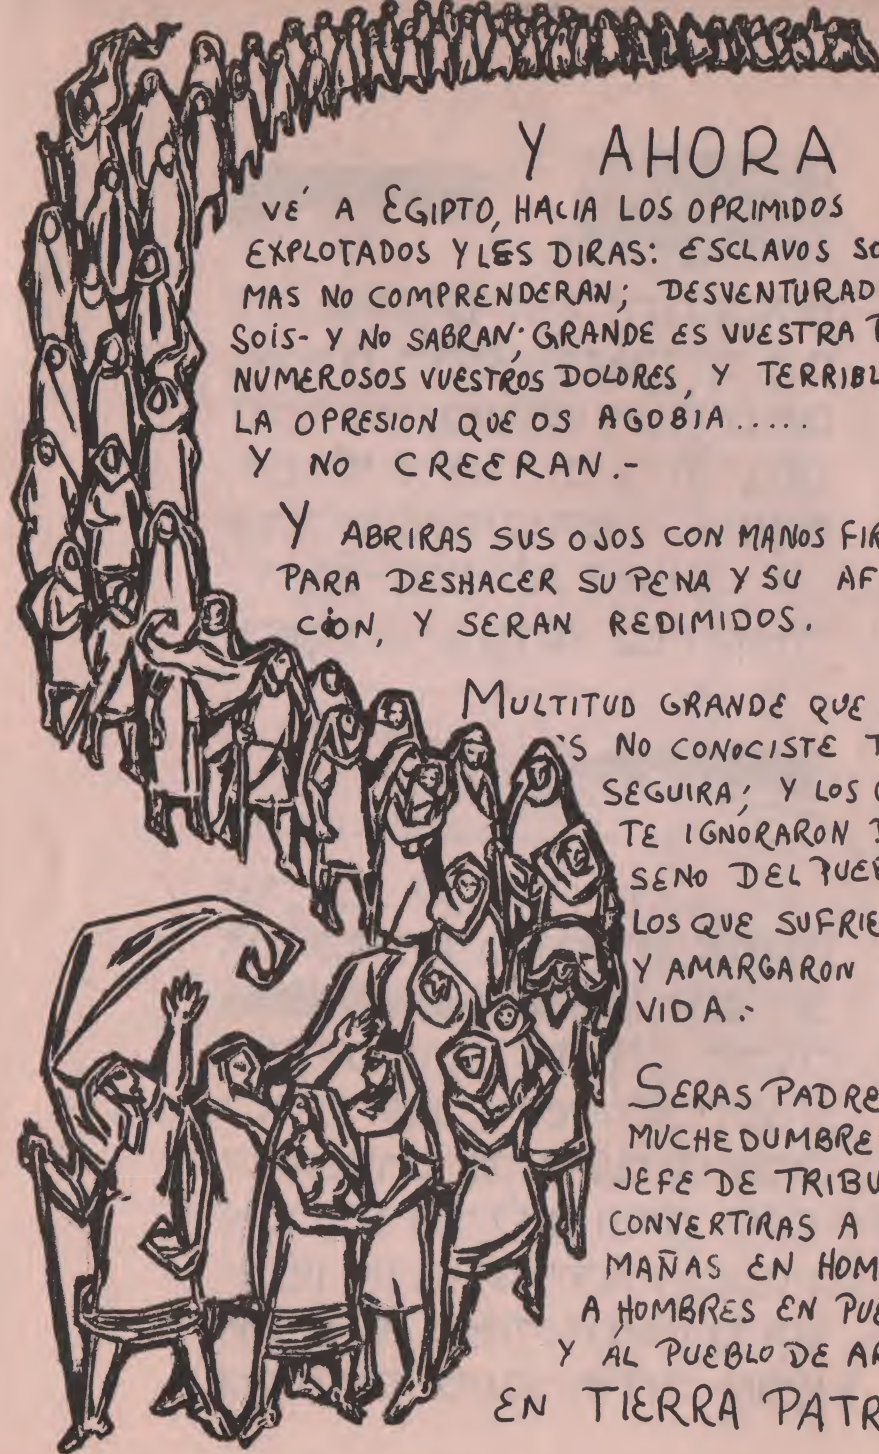 Y AHORA
VÉ A EGIPTO, HACIA LOS OPRIMIDOS
EXPLOTADOS Y LES DIRAS: ESCLAVOS SO
MAS NO COMPRENDERAN; DESVENTURAD
SOIS- Y NO SABRAN; GRANDE ES VUESTRA
NUMEROSOS VUESTROS DOLORES, Y TERRIBL
LA OPRESION QUE OS AGOBIA.....
Y NO CREERAN.-
Y ABRIRAS SUS OJOS CON MANOS FIR
PARA DESHACER SU PENA Y SU AF
CION, Y SERAN REDIMIDOS.
MULTITUD GRANDE QUE
S NO CONOCISTE T
SEGUIRA; Y LOS
TE IGNORARON
SENO DEL PUEB
LOS QUE SUFRIE
Y AMARGARON
VIDA.-
SERAS PADRE
MUCHEDUMBRE
JEFE DE TRIBU
CONVERTIRAS A
MAÑAS EN HOM
A HOMBRES EN PUE
Y AL PUEBLO DE AR
EN TIERRA PATR